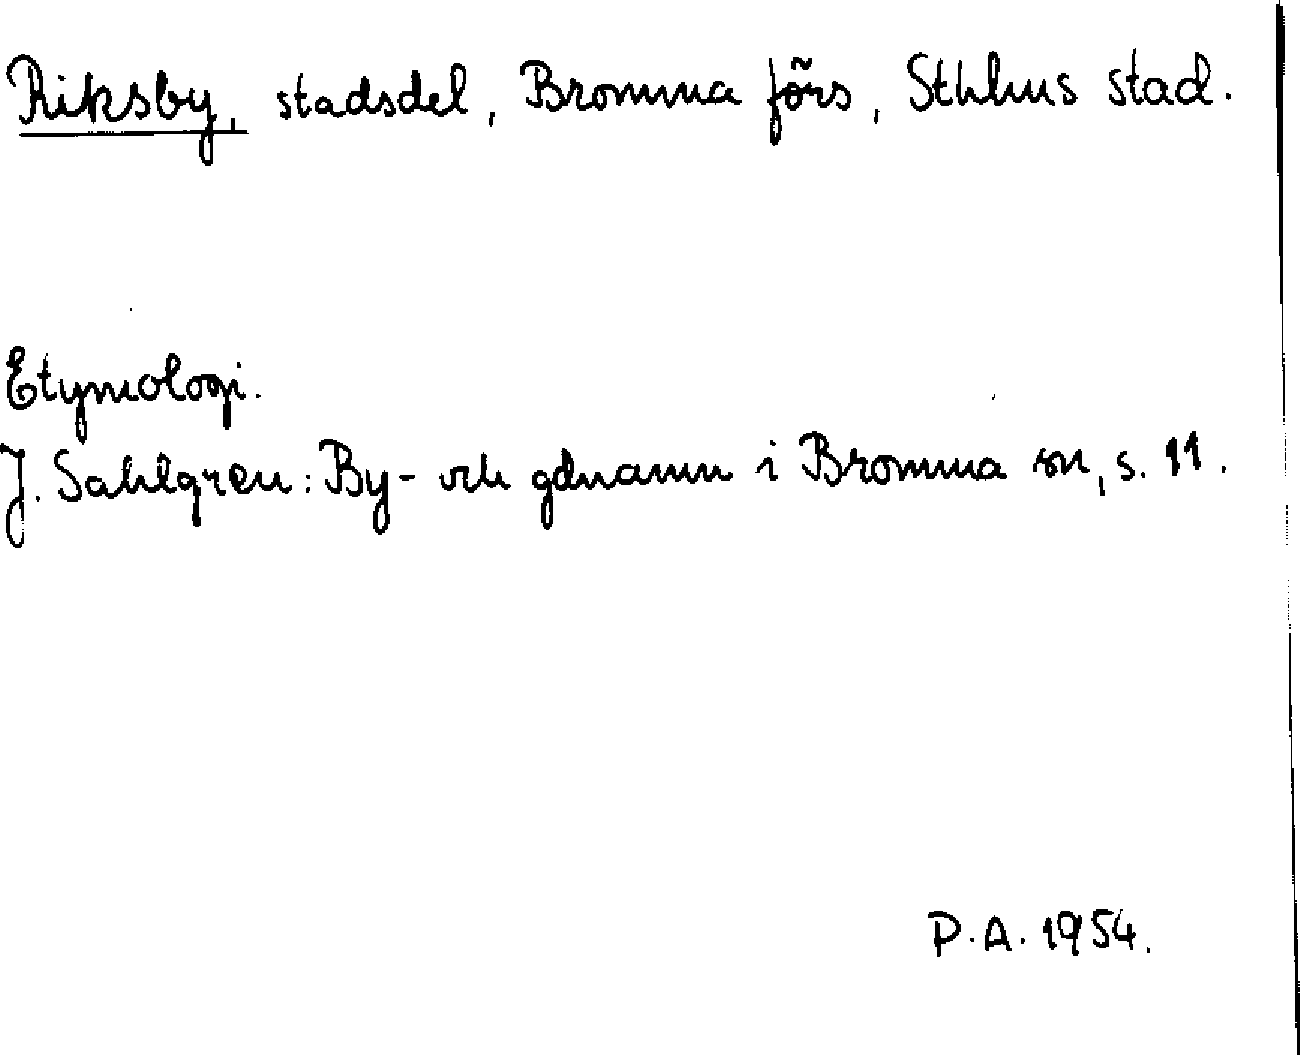 Riksby, stadsdel, Bromma förs, Sthlms stad.
Etymologi.
J. Sahlgren: By- och gdnamn i Bromma sn, s. 11.
P.A. 1954.